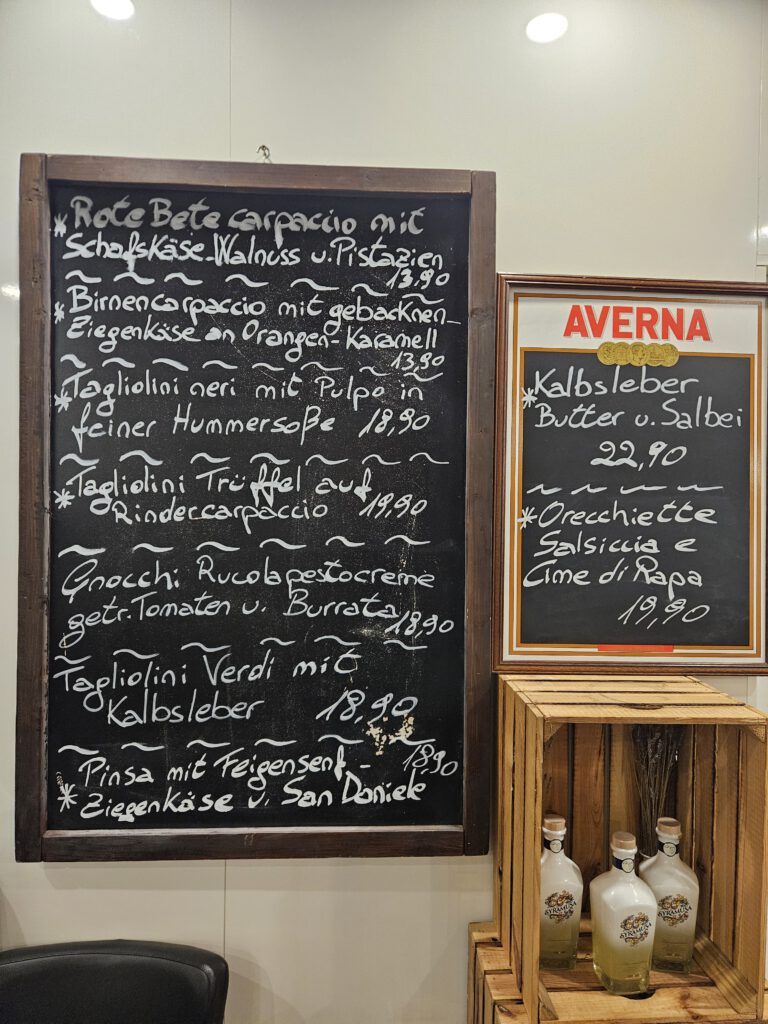 * Rote Bete carpaccio mit
Schafskäse-Walnuss u. Pistazien
13,90
* Birnencarpaccio mit gebacknen-
Ziegenkäse an Orangen-Karamell
13,90
* Tagliolini neri mit Pulpo in
feiner Hummersoße 18,90
* Tagliolini Trüffel auf
Rindercarpaccio 19,90
Gnocchi Rucolapestocreme
getr. Tomaten u. Burrata 18,90
Tagliolini Verdi mit
Kalbsleber 18,90
* Pinsa mit Feigensenf - 18,90
Ziegenkäse u. San Daniele
AVERNA
* Kalbsleber
Butter u. Salbei
22,90
* Orecchiette
Salsiccia e
Cime di Rapa
19,90
SYRAMUSA
SYRAMUSA
SYRAMUSA